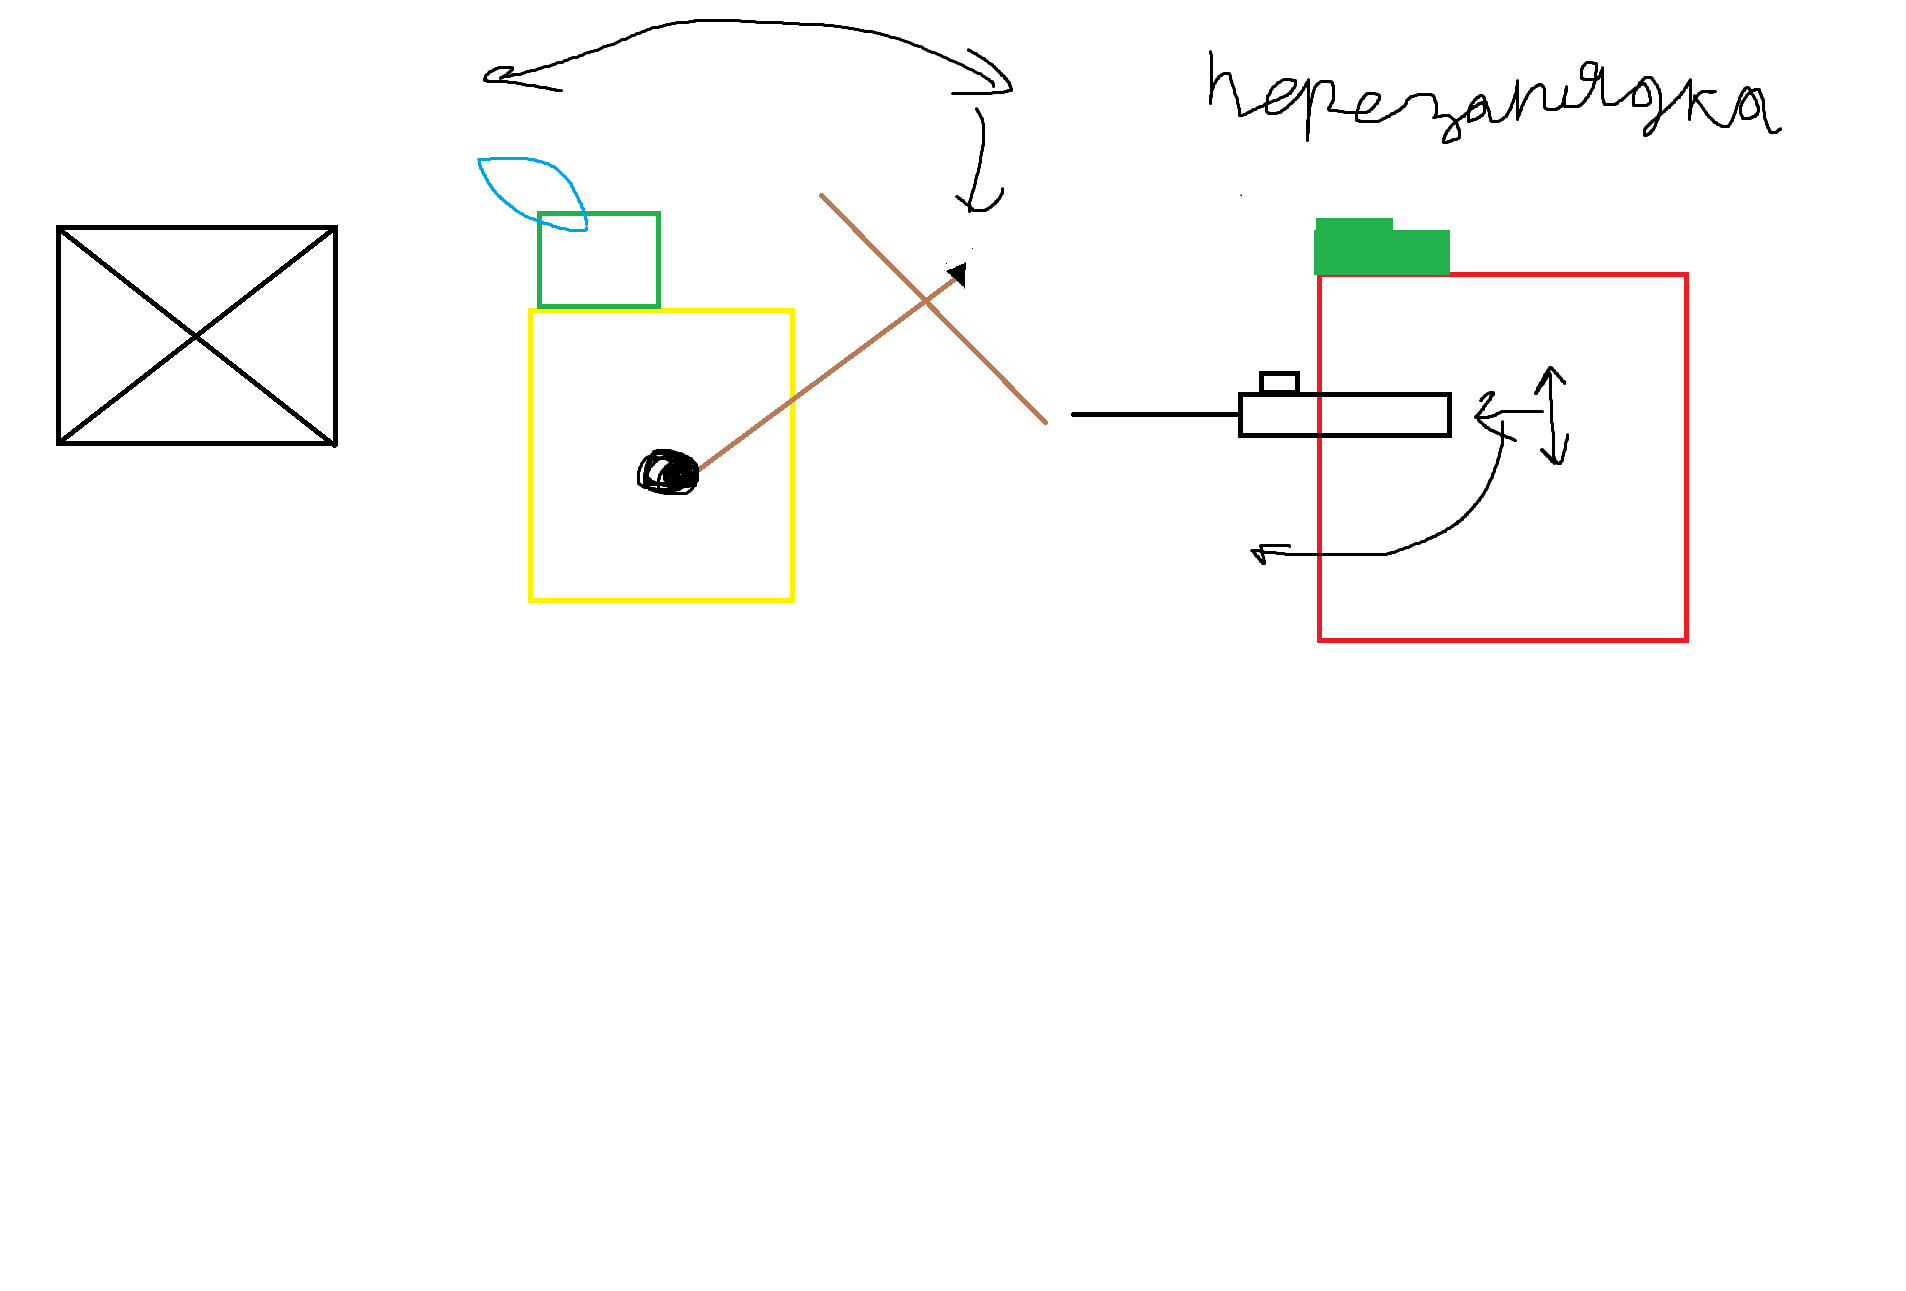 перезарядка